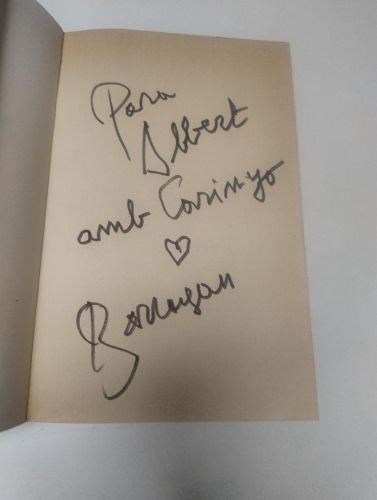 Para
Albert
amb Carinyo
♡
Barragan